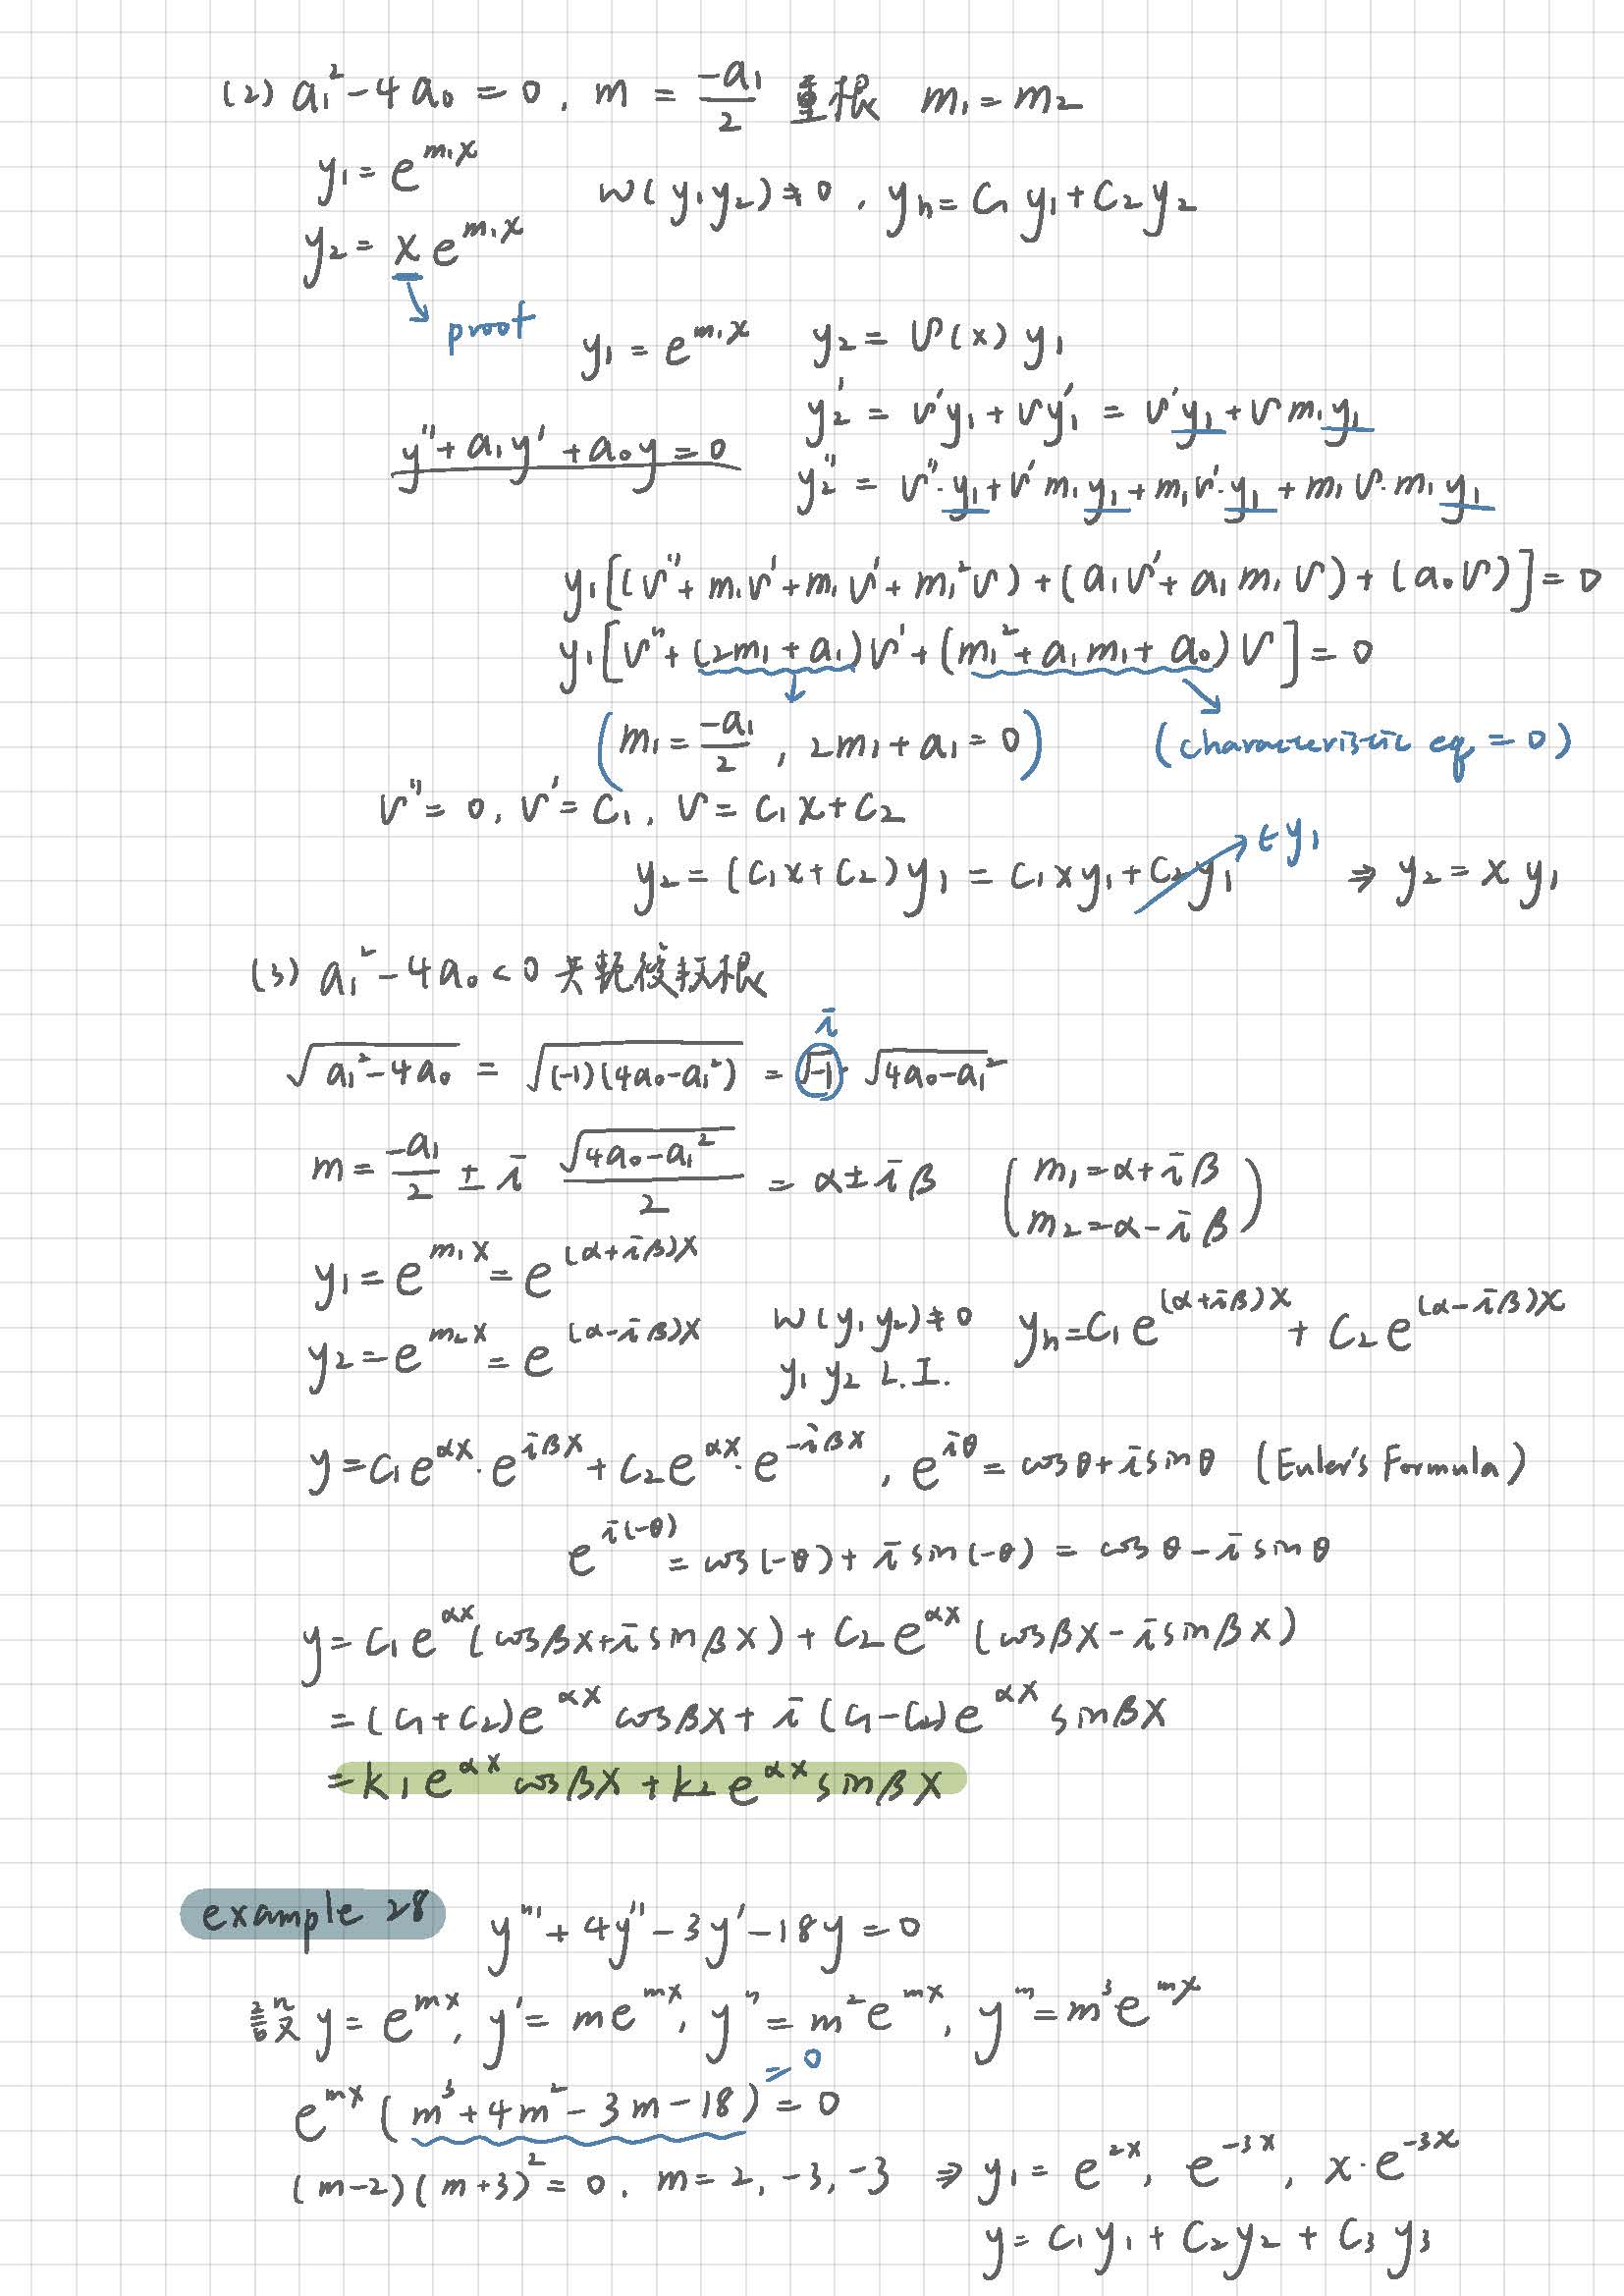 (2) a₁² - 4a₀ = 0, m = -a₁/2 重根 m₁ = m₂
y₁ = e^{m₁x}
W(y₁y₂) ≠ 0, y_h = C₁y₁ + C₂y₂
y₂ = x e^{m₁x}
proof
y₁ = e^{m₁x} y₂ = v(x) y₁
y₂' = v'y₁ + vy₁' = v'y₁ + v m₁y₁
y'' + a₁y' + a₀y = 0
y₂'' = v''·y₁ + v'm₁y₁ + m₁v'·y₁ + m₁v·m₁y₁
y₁[(v'' + m₁v' + m₁v' + m₁²v) + (a₁v' + a₁m₁v) + (a₀v)] = 0
y₁[v'' + (2m₁ + a₁)v' + (m₁² + a₁m₁ + a₀)v] = 0
(m₁ = -a₁/2, 2m₁ + a₁ = 0) (characteristic eq = 0)
v'' = 0, v' = C₁, v = C₁x + C₂
∈y₁
y₂ = (C₁x + C₂)y₁ = C₁xy₁ + C₂y₁ ⇒ y₂ = x y₁
(3) a₁² - 4a₀ < 0 共軛複數根
i
√(a₁² - 4a₀) = √((-1)(4a₀ - a₁²)) = √-1 · √(4a₀ - a₁²)
m = -a₁/2 ± i √(4a₀ - a₁²)/2 = α ± iβ (m₁ = α + iβ
m₂ = α - iβ)
y₁ = e^{m₁x} = e^{(α+iβ)x}
W(y₁y₂) ≠ 0 y_h = C₁e^{(α+iβ)x} + C₂e^{(α-iβ)x}
y₂ = e^{m₂x} = e^{(α-iβ)x}
y₁ y₂ L.I.
y = C₁e^{αx}·e^{iβx} + C₂e^{αx}·e^{-iβx}, e^{iθ} = cosθ + isinθ (Euler's Formula)
e^{i(-θ)} = cos(-θ) + i sin(-θ) = cosθ - i sinθ
y = C₁e^{αx}(cosβx + isinβx) + C₂e^{αx}(cosβx - isinβx)
= (C₁ + C₂)e^{αx} cosβx + i(C₁ - C₂)e^{αx} sinβx
= k₁e^{αx} cosβx + k₂e^{αx} sinβx
example 28 y''' + 4y'' - 3y' - 18y = 0
設 y = e^{mx}, y' = me^{mx}, y'' = m²e^{mx}, y''' = m³e^{mx}
= 0
e^{mx}(m³ + 4m² - 3m - 18) = 0
(m-2)(m+3)² = 0, m = 2, -3, -3 ⇒ y₁ = e^{2x}, e^{-3x}, x·e^{-3x}
y = C₁y₁ + C₂y₂ + C₃y₃